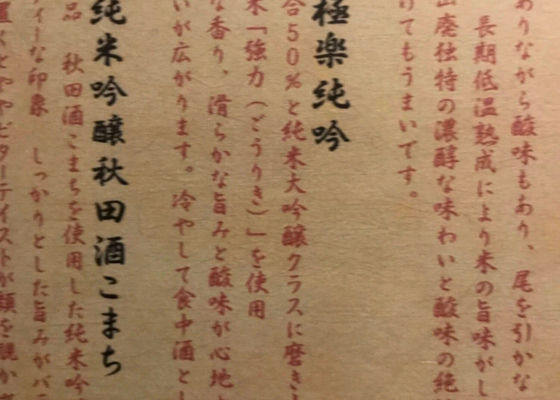 ありながら酸味もあり、尾を引かな
長期低温熟成により米の旨味がし
廃独特の濃醇な味わいと酸味の絶
けてもうまいです。
極楽純吟
合50％と純米大吟醸クラスに磨き
米「強力(ごうりき)」を使用
な香り、滑らかな旨みと酸味が心地
いが広がります。冷やして食中酒とし
純米吟醸秋田酒こまち
品 秋田酒こまちを使用した純米吟
ィーな印象 しっかりとした旨みがバ
ややビターテイストが顔を覗か